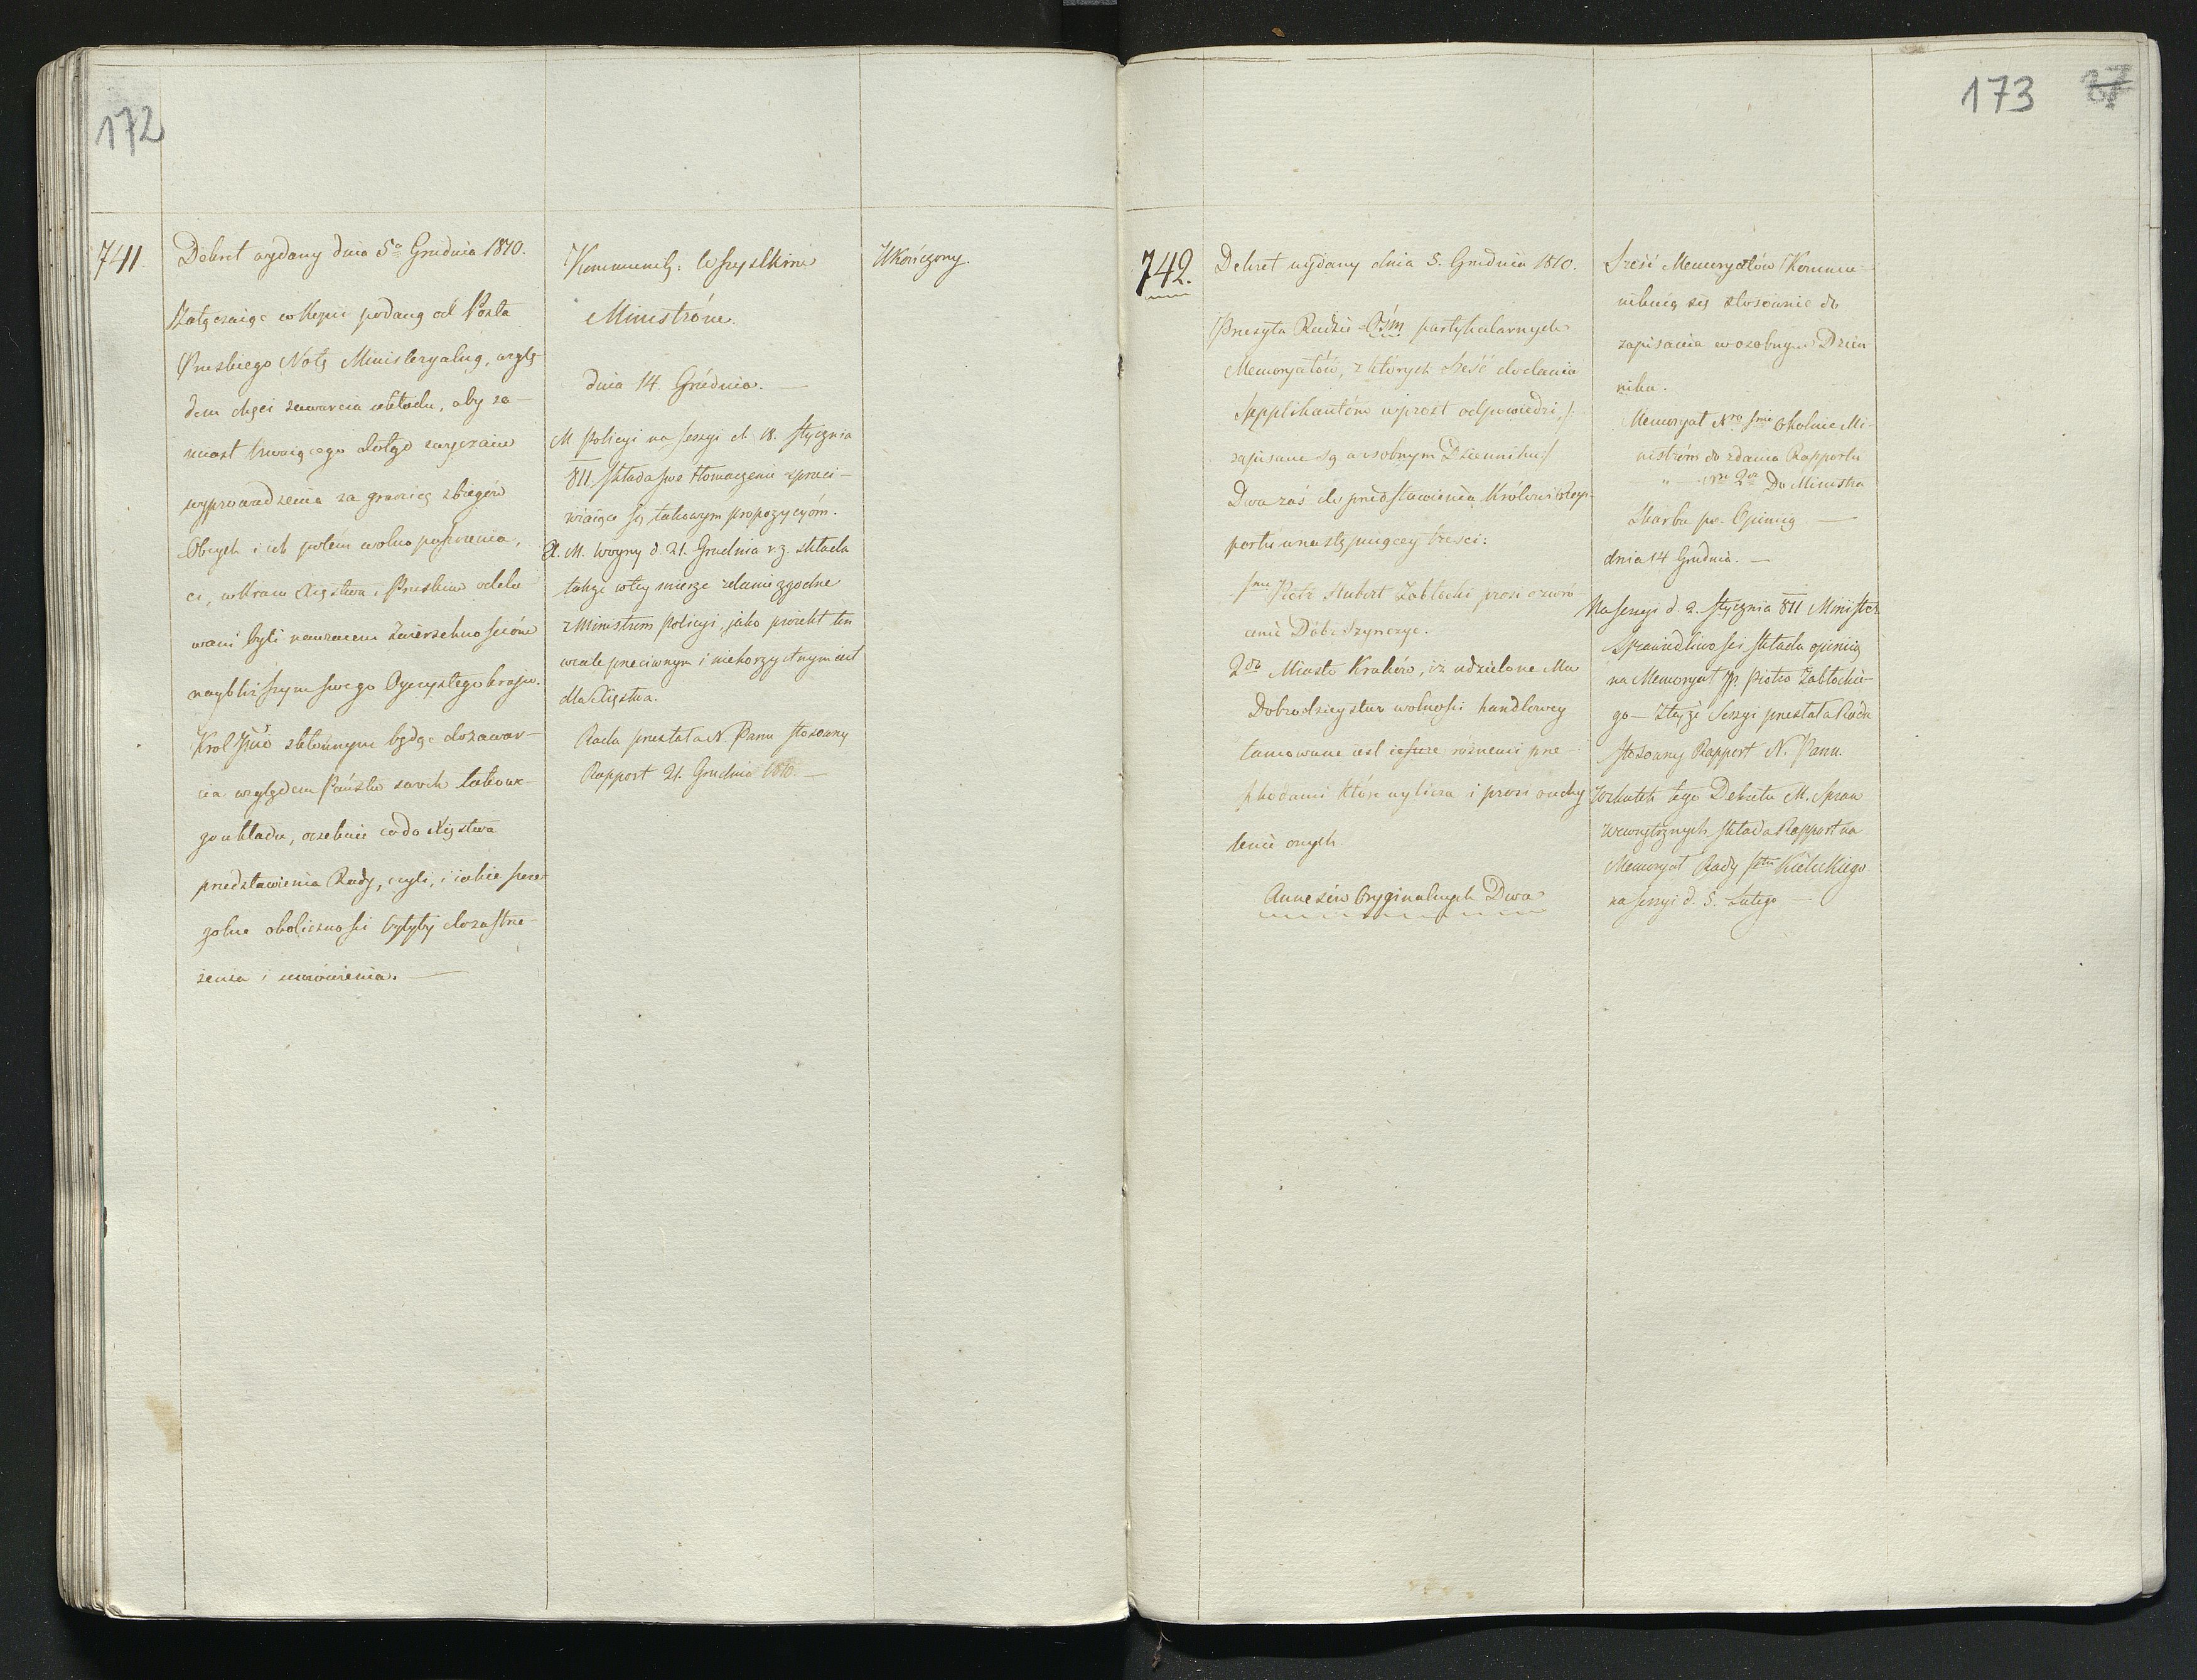 172
741.
Dekret wydany dnia 5º Grudnia 1810.
Załączaiąc w Kopii podaną od Posła
Pruskiego Notę Ministeryalną, wzglę-
dem chęci zawarcia układu, aby za-
miast trwaiącego dotąd zwyczaiu
wyprowadzenia za granicę zbiegów
Obcych i ich potem wolno puszczenia,
ci, w Kraiu Xięstwa i Pruskim odda
wani byli nawzaiem Zwierzchnościom
naybliższym swego Oyczystego kraju.
Krol Jmć skłonnym będąc do zawar-
cia względem Państw swoich takowe-
go układu, oczekuie co do Xięstwa
przedstawienia Rady, czyli, i iakie szcze-
golne okoliczności byłyby do zastrze-
żenia i umówienia. —
Kommunik: Wszystkim
Ministróm.
dnia 14. Grudnia. —
M Policyi na sessyi d. 18. stycznia
811. składa swe tłomaczenie sprzeci-
wiaiące się takowym propozycyóm.
A. M. Woyny d. 21. Grudnia r. z. składa
także w tey mierze zdanie zgodne
z Ministrem Policyi, jako proiekt ten
wcale przeciwnym i niekorzystnym iest
dla Xięstwa.
Rada przesłała N. Panu stosowny
Rapport 21. Grudnia 1810. —
Ukończony.
173 37
742.
Dekret wydany dnia 5. Grudnia 1810.
Przesyła Radzie Ośm partykularnych
Memoryałów, z których sześć do dania
Supplikantóm wprost odpowiedzi /:
zapisane są w osobnym Dzienniku/
Dwa zaś do przedstawienia Królowi Rap-
portu w następuiącey treści:
1mo Piotr Hubert Zabłocki prosi o zwró
cenie Dóbr Szynczyc.
2do Miasto Kraków, iż udzielone Mu
Dobrodzieystwo wolności handlowey
tamowane iest różnemi prze
szkodami które wylicza i prosi o uchy
lenie onych.
Annexów Oryginalnych Dwa
Sześć Memoryałów Kommu-
nikuią się stosownie do
zapisania w osobnym Dzien
niku.
Memoryał Nro 1mo Okolnie Mi-
nistróm do zdania Rapportu
" Nro 2do Do Ministra
Skarbu po Opinią —
dnia 14 Grudnia. —
Na sessyi d. 2. stycznia 811 Minister
Sprawiedliwości składa opinią
na Memoryał JP. Piotra Zabłockie-
go — Z teyże Sessyi przesłała Rada
stosowny Rapport N. Panu.
W skutek tego Dekretu M. Spraw
Wewnętrznych składa Rapport na
Memoryał Rady Kieleckiego
na sessyi d. 5. Lutego —